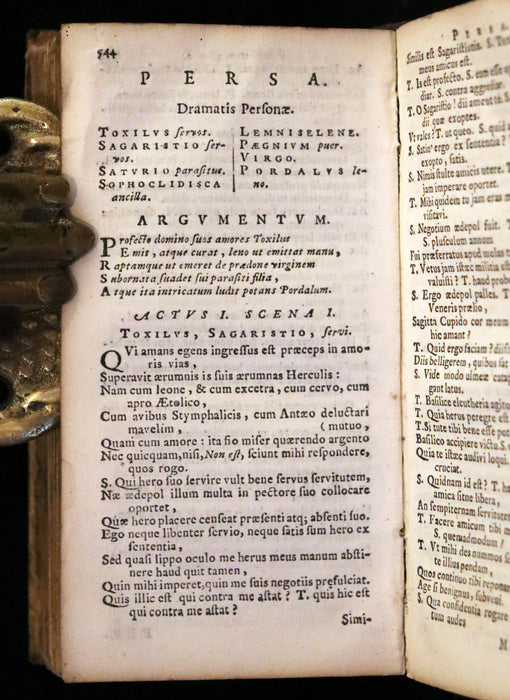 544
PERSA.
Dramatis Personæ.
TOXILVS servos.
SAGARISTIO ser-
vos.
SATVRIO parasitus.
SOPHOCLIDISCA
ancilla.
LEMNISELENE.
PÆGNIVM puer.
VIRGO.
PORDALVS le-
no.
ARGVMENTVM.
Profecto domino suos amores Toxilus
Emit, atque curat, leno ut emittat manu,
Raptamque ut emeret de prædone virginem
Subornata suadet sui parasiti filia,
Atque ita intricatum ludit potans Pordalum.
ACTVS I. SCENA I.
TOXILVS, SAGARISTIO, servi.
QVi amans egens ingressus est præceps in amo-
ris vias,
Superavit ærumnis is suis ærumnas Herculis:
Nam cum leone, & cum excetra, cum cervo, cum
apro Ætolico,
Cum avibus Stymphalicis, cum Antæo deluctari
mavelim, (mutuo,
Quam cum amore: ita fio miser quærendo argento
Nec quicquam, nisi, Non est, sciunt mihi respondere,
quos rogo.
S. Qui hero suo servire vult bene servus servitutem,
Næ ædepol illum multa in pectore suo collocare
oportet,
Quæ hero placere censeat præsenti atq; absenti suo.
Ego neque libenter servio, neque satis sum hero ex
sententia,
Sed quasi lippo oculo me herus meus manum absti-
nere haud quit tamen,
Quin mihi imperet, quin me suis negotiis præfulciat.
Quis illic est qui contra me astat? T. quis hic est
qui contra me astat?
Simi-
PERSA
Similis est Sagaristionis. S. To
meus amicus est.
T. Is est profecto. S. eum esse
diar. S. contra aggrediar.
T. O Sagaristio! dii ament te. S.
dii quæ exoptes.
Vt vales? T. ut queo. S. quid
S. Satin' ergo ex sententia?
exopto, satis.
S. Nimis stulte amicis utere. T.
jam imperare oportet.
T. Mihi quidem tu jam eras m
ristavi.
S. Negotium ædepol fuit. T.
S. plusculum annum
Fui præferratus apud molas t
T. Vetus jam istæc militia
valuisti? T. haud probe
S. Ergo ædepol palles. T.
Veneris prælio,
Sagitta Cupido cor meum
hic amant?
T. Quid ergo faciam? diis
Diis belligerem, quibus sat
S. Vide modo ulmeæ catap
gant latus.
T. Basilice eleutheria agito
T. Quia herus peregre est.
T. Si tute tibi bene esse pot
Basilico accipiere victu. S.
Quia te istæc audivi loqui.
cruciat.
S. Quidnam id est? T.
amica sitne libera,
An sempiternam servitutem
T. Facere amicum tibi m
S. quemadmodum?
T. Vt mihi des nummos
te illius pendam,
Quos continuo tibi reponam
Age si benignus, subveni.
S. Qua confidentia rogare
tum audes